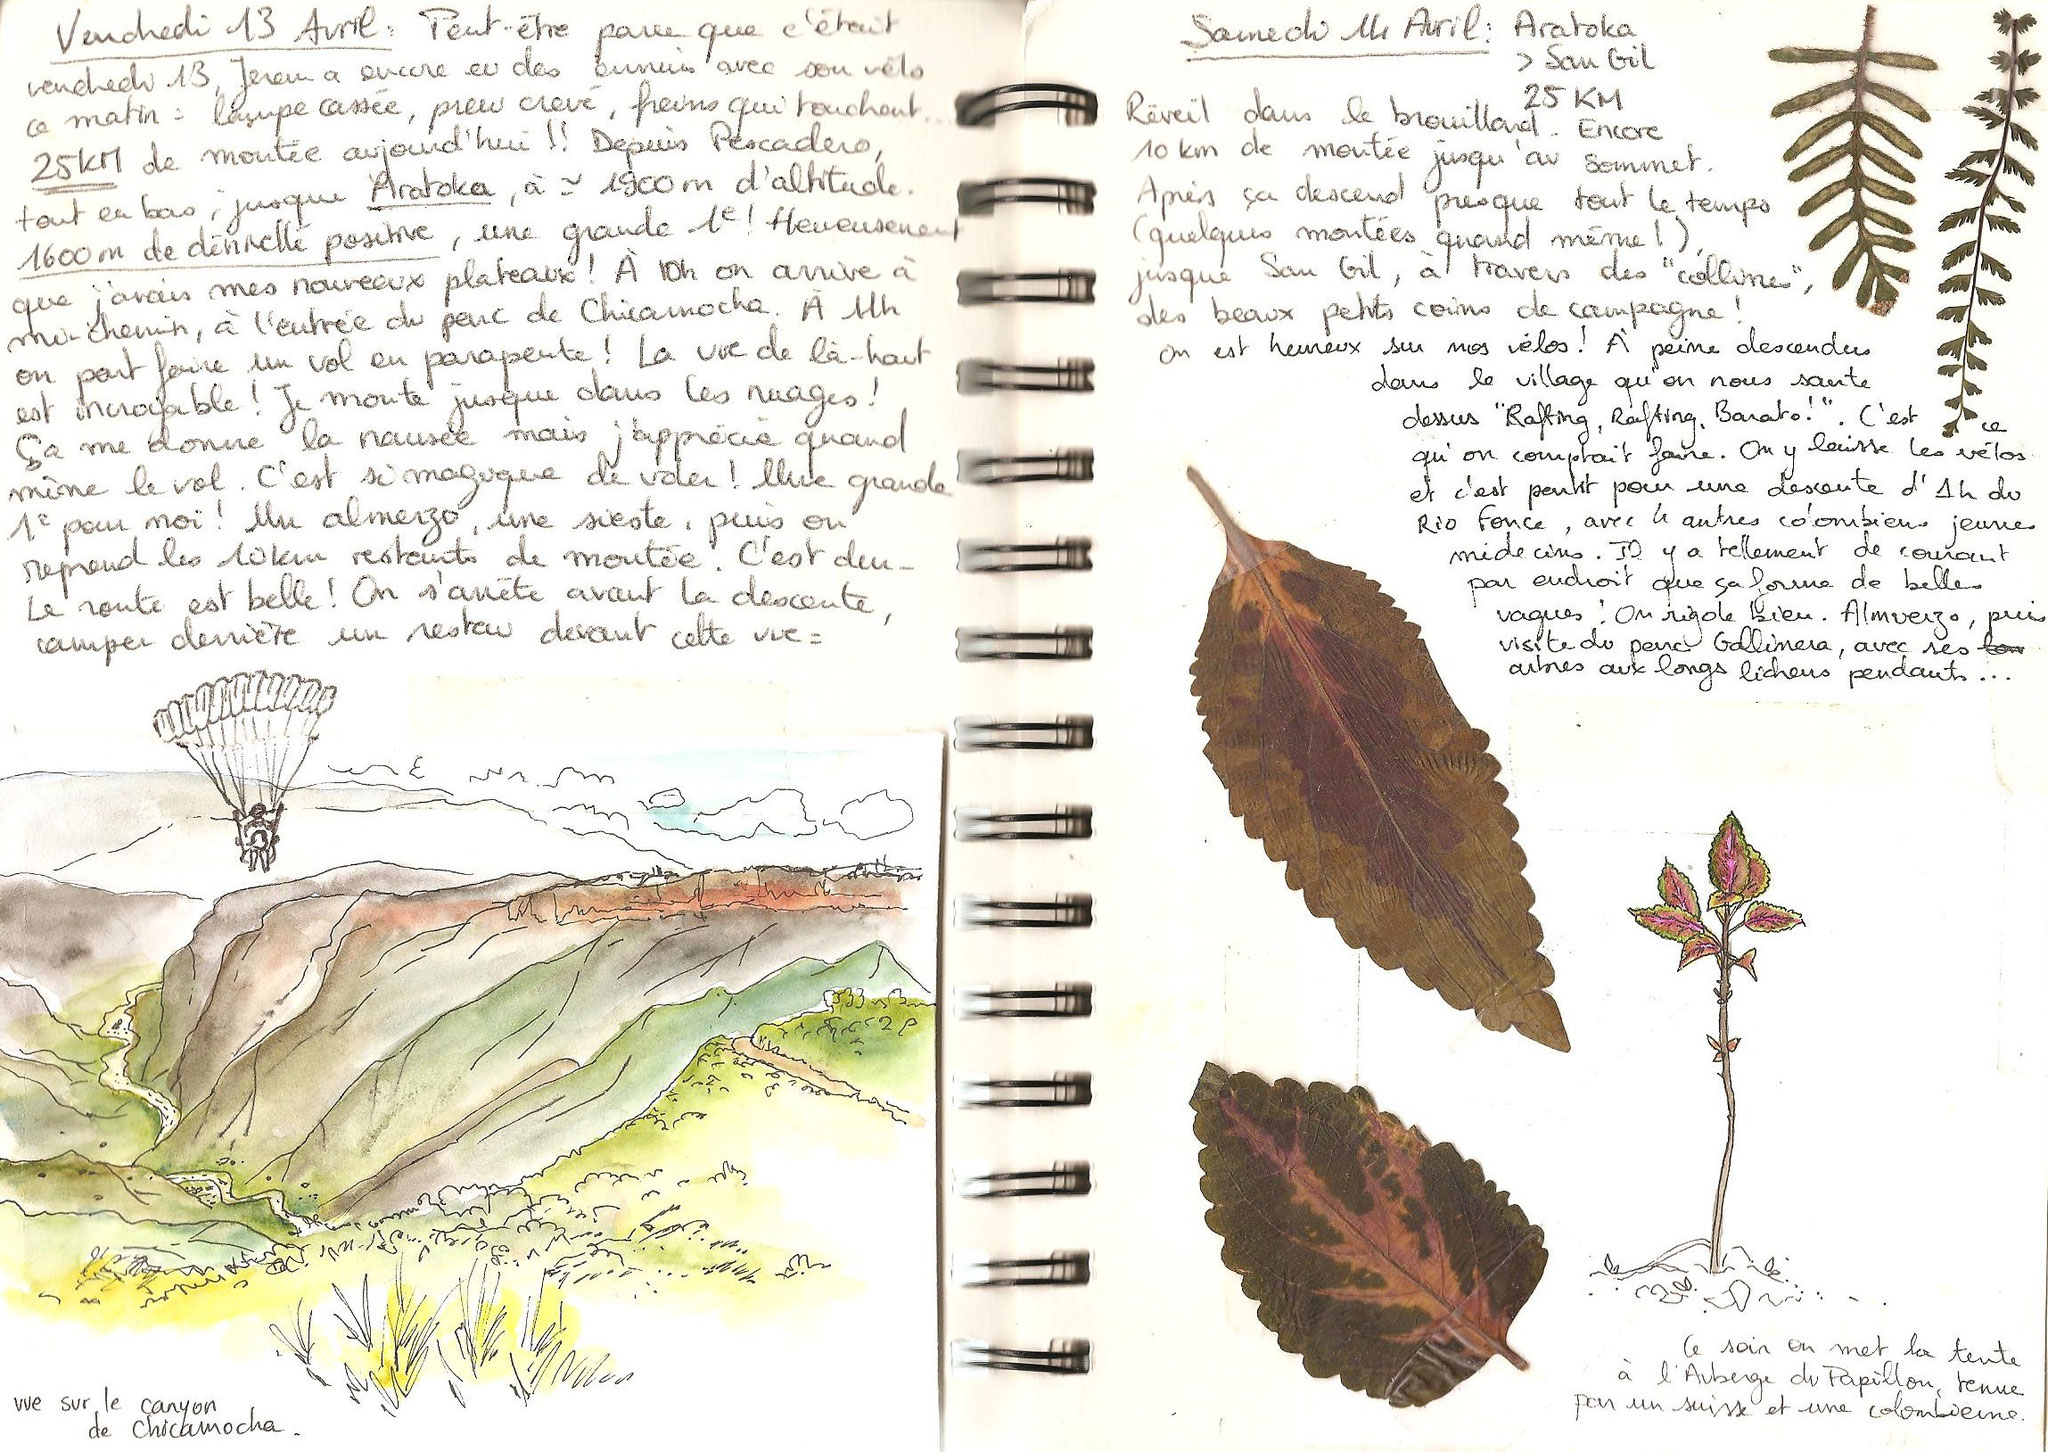 Vendredi 13 Avril : Peut-être parce que c'était
vendredi 13, Jerem a encore eu des ennuis avec son vélo
ce matin : lampe cassée, pneu crevé, freins qui touchent...
25KM de montée aujourd'hui !! Depuis Pescadero,
tout en bas, jusque Aratoka, à ≃ 1900m d'altitude.
1600m de dénivellé positive, une grande 1e ! Heureusement
que j'avais mes nouveaux plateaux ! À 10h on arrive à
mi-chemin, à l'entrée du parc de Chicamocha. À 11h
on part faire un vol en parapente ! La vue de là-haut
est incroyable ! Je monte jusque dans les nuages !
Ça me donne la nausée mais j'apprécie quand
même le vol. C'est si magique de voler ! Une grande
1e pour moi ! Un almerzo, une sieste, puis on
reprend les 10km restants de montée. C'est dur.
La route est belle ! On s'arrête avant la descente,
camper derrière un restau devant cette vue :
vue sur le canyon
de Chicamocha.
Samedi 14 Avril : Aratoka
> San Gil
25 KM
Réveil dans le brouillard. Encore
10 km de montée jusqu'au sommet.
Après ça descend presque tout le temps
(quelques montées quand même !),
jusque San Gil, à travers des "collines",
des beaux petits coins de campagne !
On est heureux sur nos vélos ! À peine descendus
dans le village qu'on nous saute
dessus "Rafting, Rafting, Barato!". C'est ce
qu'on comptait faire. On y laisse les vélos
et c'est partit pour une descente d'1h du
Rio Fonce, avec 4 autres colombiens jeunes
médecins. Il y a tellement de courant
par endroit que ça forme de belles
vagues ! On rigole bien. Almuerzo, puis
visite du parc Gallinera, avec ses
arbres aux longs lichens pendants...
Ce soir on met la tente
à l'Auberge du Papillon, tenue
par un suisse et une colombienne.